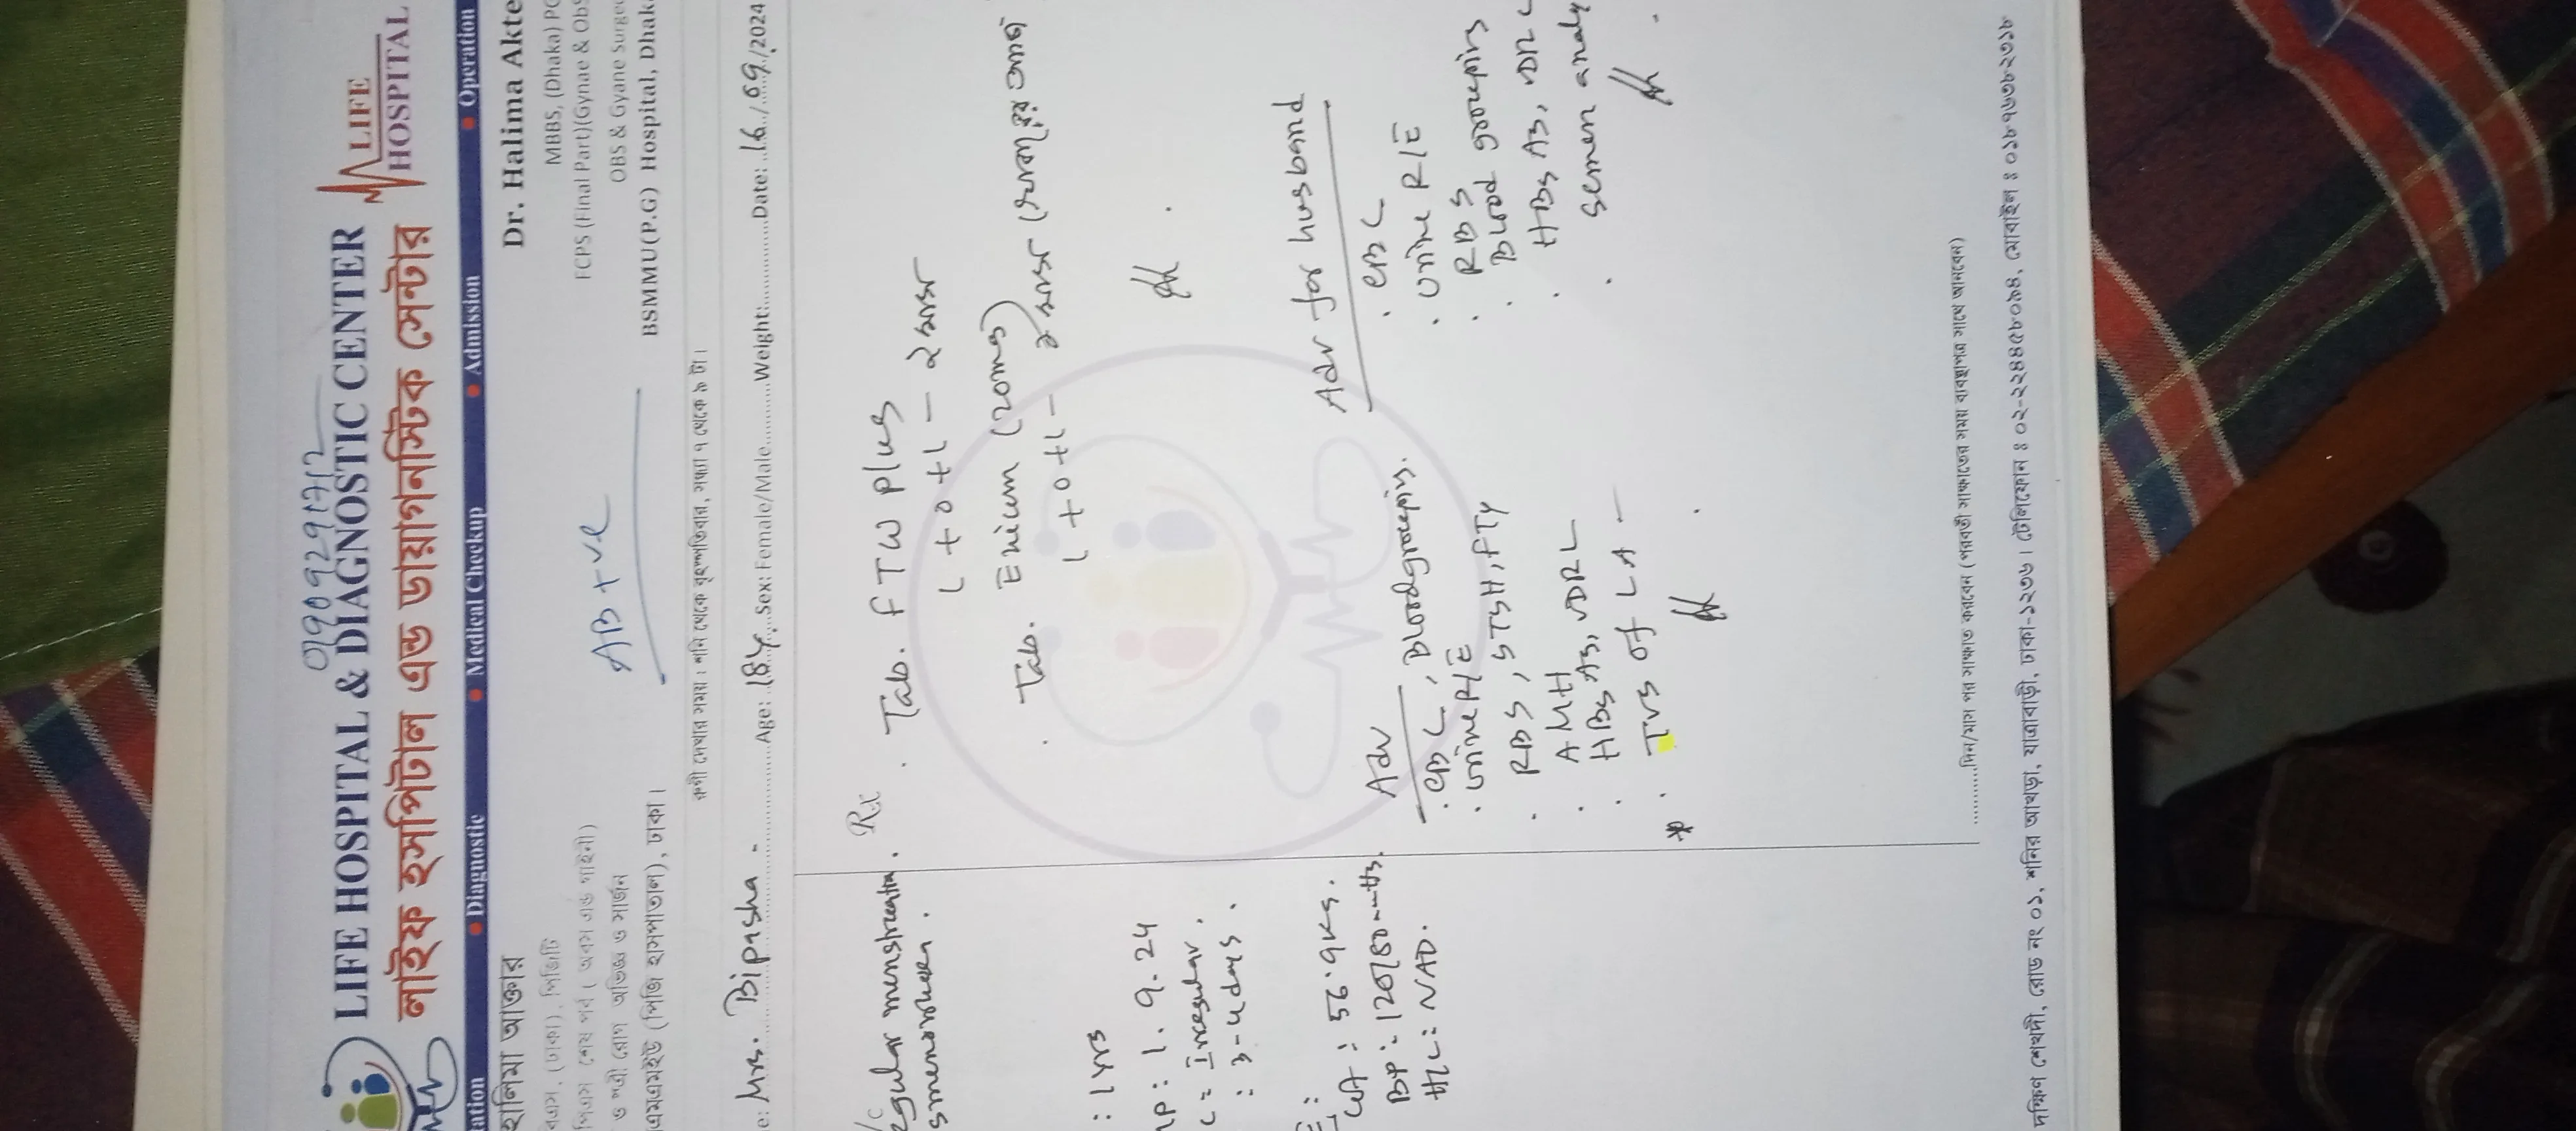 01909291712
LIFE HOSPITAL & DIAGNOSTIC CENTER
লাইফ হসপিটাল এন্ড ডায়াগনস্টিক সেন্টার
LIFE
HOSPITAL
ation • Diagnostic • Medical Checkup • Admission • Operation
হালিমা আক্তার
এস, (ঢাকা), পিজিটি
ও স্ত্রী রোগ অভিজ্ঞ ও সার্জন
এমএমইউ (পিজি হাসপাতাল), ঢাকা।
AB +ve
Dr. Halima Akte
MBBS, (Dhaka) PG
FCPS (Final Part)(Gynae & Obs
OBS & Gyane Surgeo
BSMMU(P.G) Hospital, Dhaka
রুগী দেখার সময় : শনি থেকে বৃহস্পতিবার, সন্ধ্যা ৭ থেকে ৯ টা।
e: Mrs. Bipasha - Age: 18y. Sex: Female/Male Weight: Date: 16/09/2024
egular menstruation.
smenorrhoea.
: 1 yrs
MP: 1.9.24
C = Irregular.
: 3-4 days.
E:
WT: 56.9 kg.
BP: 120/80 mmHg.
H/L: NAD.
Rx
. Tab. FTW Plus
1+0+1 - ২ মাস
. Tab. Exium (20mg)
1+0+1 - ২ মাস
Adv
. CBC, Blood grouping.
. Urine R/E
. RBS, STSH, FT4
. AMH
. HBsAg, VDRL
* . TVS of LA -
Adv for husband
. CBC
. Urine R/E
. RBS
. Blood grouping
. HBsAg, VDRL
. Semen analy
দিন/মাস পর সাক্ষাত করবেন (পরবর্তী সাক্ষাতের সময় ব্যবস্থাপত্র সাথে আনবেন)
দক্ষিণ শেখদী, রোড নং ০১, শনির আখড়া, যাত্রাবাড়ী, ঢাকা-১২৩৬। টেলিফোন ঃ ০২-২২৪৪৫৮০৯৪, মোবাইল ঃ ০১৮৭৬৩৮২৩১৮